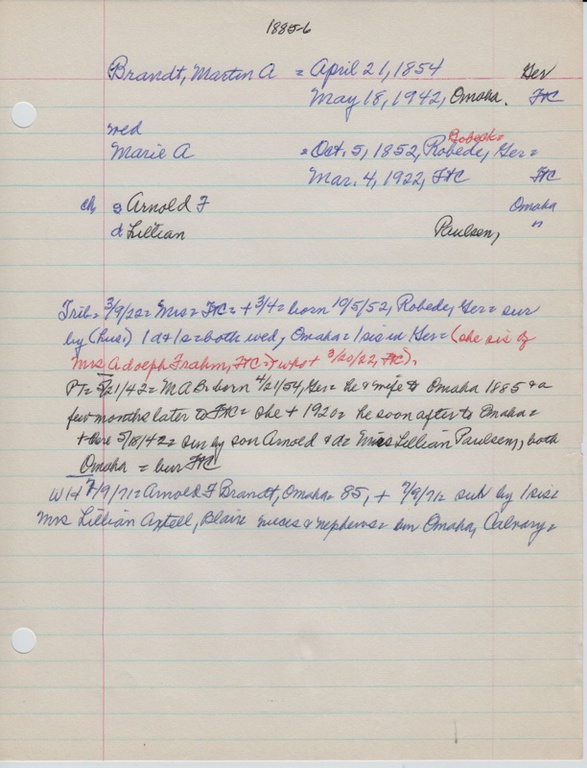 1885-6
Brandt, Martin A = April 21, 1854 Ger
May 18, 1942, Omaha. FtC
wed Robeck=
Marie A = Oct. 5, 1852, Robede, Ger=
Mar. 4, 1922, FtC FtC
ch s Arnold F Omaha
d Lillian Paulsen, "
Trib= 3/9/22= Mrs= FtC= + 3/4= born 10/5/52, Robede, Ger= sur
by (hus) 1 d & 1 s= both wed, Omaha= 1 sis in Ger= (she sis of
Mrs Adolph Frahm, FtC=) who + 3/20/22, FtC).
PT= 5/21/42= M A B= born 4/21/54, Ger= he & wife to Omaha 1885 & a
few months later to FtC= she + 1920= he soon after to Omaha=
+ there 5/18/42= sur by son Arnold & d= Mrs Lillian Paulsen, both
Omaha = bur FtC
WH 7/9/71= Arnold F Brandt, Omaha= 85, + 7/9/71= sur by 1 sis=
Mrs Lillian Axtell, Blair nieces & nephews= bur Omaha, Calvary=